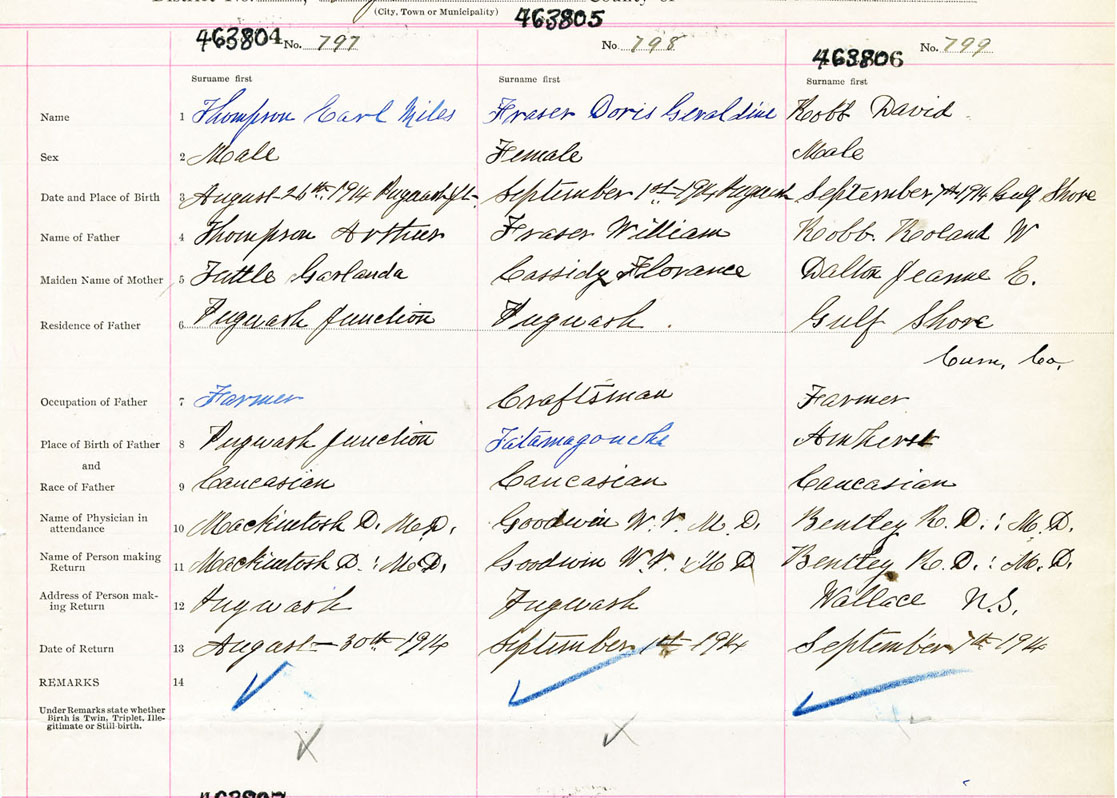 (City, Town or Municipality)
463804 No. 797
463805
No. 798
463806 No. 799
Surname first
Surname first
Surname first
Name 1 Thompson Earl Miles Fraser Doris Geraldine Robb David
Sex 2 Male Female Male
Date and Place of Birth 3 August 26th 1914 Pugwash Jt. September 1st 1914 Pugwash September 7th 1914 Gulf Shore
Name of Father 4 Thompson Arthur Fraser William Robb Roland W
Maiden Name of Mother 5 Tuttle Garlanda Cassidy Florance Dalton Jeanne E.
Residence of Father 6 Pugwash Junction Pugwash. Gulf Shore
Cum, Co,
Occupation of Father 7 Farmer Craftsman Farmer
Place of Birth of Father 8 Pugwash Junction Tatamagouche Amherst
and
Race of Father 9 Caucasian Caucasian Caucasian
Name of Physician in
attendance 10 Mackintosh D. M.D. Goodwin W.V. M.D. Bentley R.D.: M.D.
Name of Person making
Return 11 Mackintosh D.: M.D. Goodwin W.V.: M D Bentley R.D.: M.D.
Address of Person mak-
ing Return 12 Pugwash Pugwash Wallace N.S.
Date of Return 13 August 30th 1914 September 1st 1914 September 7th 1914
REMARKS 14
Under Remarks state whether
Birth is Twin, Triplet, Ille-
gitimate or Still-birth.